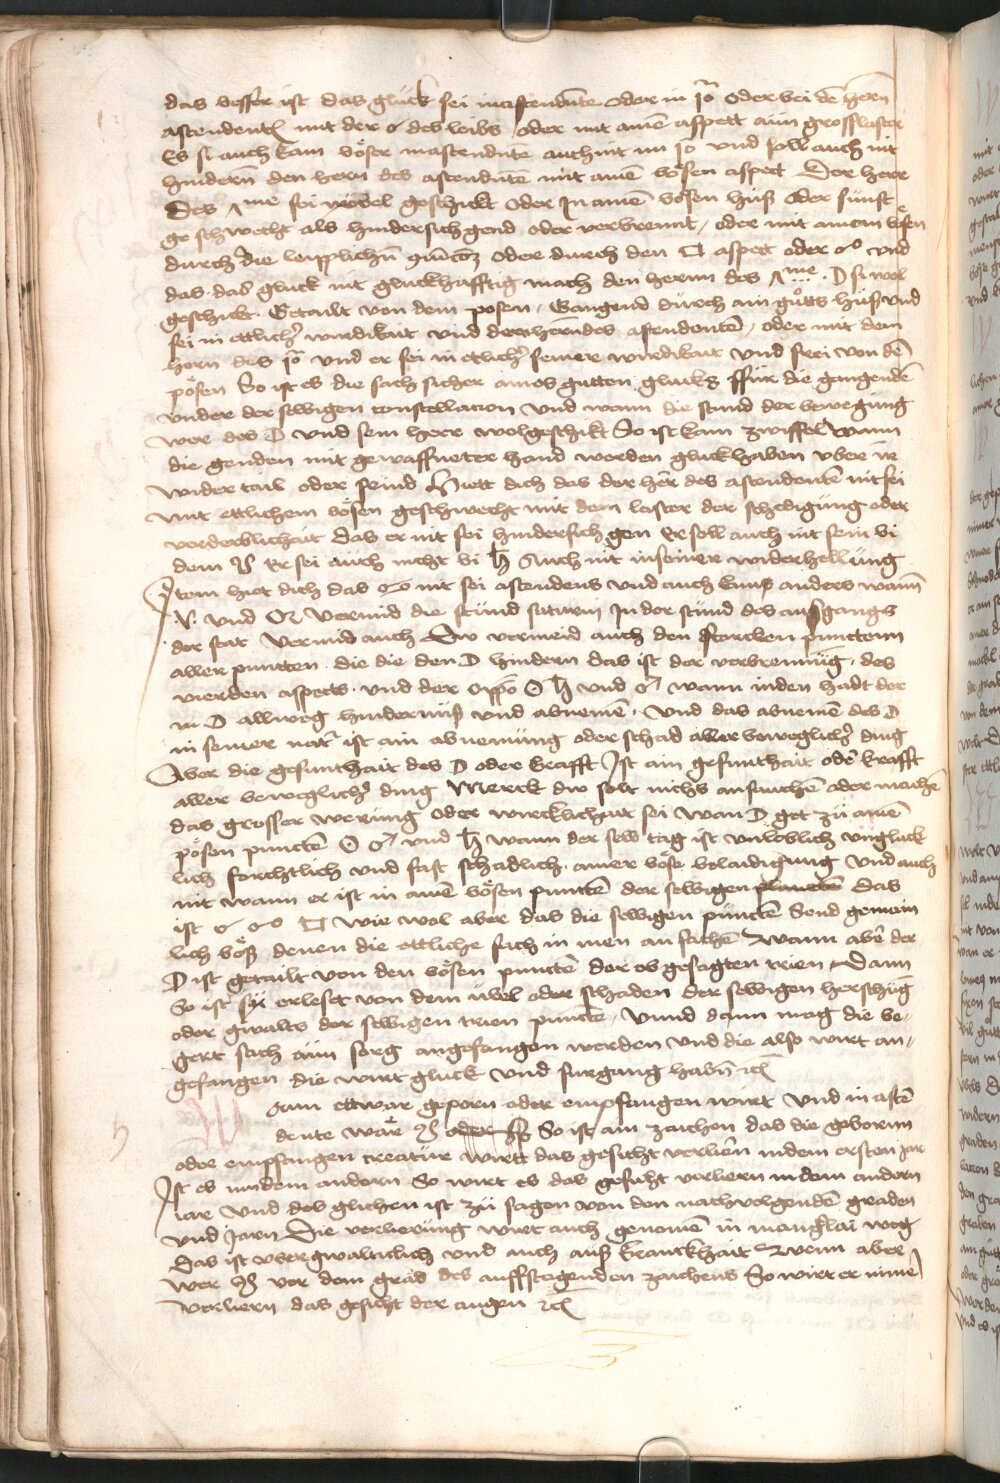 das besser ist das glück sei in ascendente oder in io oder bei dē hern
ascendentis mit der ☌ des leibs oder mit ainē aspett ain grosslaster
Es si auch kain böser in ascendente auch nit im io und soll auch nit
hindern den hern des ascendenten mit ainē bösen aspect Der herr
des me sei wol geschickt oder In ainē bösen huß oder sunst
geschwecht als hindersich gend oder verbrennt / oder mit ainem bösen
durch die leipplichn oder durch den □ aspett oder ☍ und
das das gluck nit gluckhafftig mach den herrn des me . ☽ si wol
geschickt . Getailt von dem posen / Gangend durch ain gůts huß und
sei in ettlichr wirdikait und dem hern des ascendentē / oder mit dem
hern des io und er sei in etlichr seiner wirdikait und frei von dē
pösen So ist es die sach sicher aines gutten glucks ffur die gangendē
under der selbigen constellacion und wann die stund der bewegung
wer des ☽ und sein herr wolgeschikt So ist kain zwiffel wann
die genden mit gewaffneter hand werden gluck haben uber ir
wider tail oder feind Hiett dich das der hēr des ascendentē nit sei
mit ettlichem bösen geschwecht mit dem laster der schedigung oder
verderblichait das er nit sei hindersich gen Er soll auch nit sein bi
dem Er sei auch nicht bi ♄ Auch nit in seiner widerhellung
Item hiet dich das nit sei ascendens und auch kains anders wann
♑ und Vermid die stund saturni In der stund des ausgangs
der stat Vermid auch Dw vermeid auch den starcken punctenn
aller puncten die die den ☽ hindern das ist der verbrennūg . des
vierden aspects . und der oppō ☉ ♄ und ♂ wann in den hādt der
in ☽ allweg hindernuß und abnemē . Und das abnemē des ☽
in seiner natr ist ain abnemung oder schad aller beweglichr ding
Aber die gesunthait des ☽ oder krafft Ist ain gesunthait oder krafft
aller beweglichr ding Merck dw solt nichs anfauchē oder machē
das grosser werung oder wircklichait sei wan ☽ get zů ainē
pösen punctē ☉ ♂ und ♄ wann der selb tag ist unloblich ungluck
lich forchtlich und fast schädlich . ainer böse belaidigung und auch
nit wann er ist in ainē bösen punctē der selbigen planeten das
ist ☌ ☍ □ wie wol aber das die selbigen punctē Send gemain
lich böß denen die ettliche sach in inen an fachē Wann aber der
☽ ist getailt von den bösen punctē der ob gesagten trien Dann
So ist sÿ erlesct von dem übel oder schaden der selbigen herschüg
oder gwalts der selbigen trien punctē / Unnd dann mag die be-
gert sach ain sorg angefangen werden und die also wirt an-
gefangen die wirt gluck und furgang habn̄ etc
Wann ettwar geporn oder empfangen wirt und in ascē
dente wär ♏ oder So ist ain zaichen das die geborun
oder empfangen creatur wirtt das gesicht verliern in dem ersten jar
Ist es in dem andern So wirt es das gesicht verliern in dem andern
iar und des glichen ist zů sagen von den nachvolgendē graden
und Jarn Die verlierung wirt auch genomē in mangklai weg
Das ist vbergwalticlich und auch auß kranckhait Wenn aber
wer ♏ vor dem grad des auffsteigenden zaichens So wirt er nimē
Verliern das gesicht der augen etc